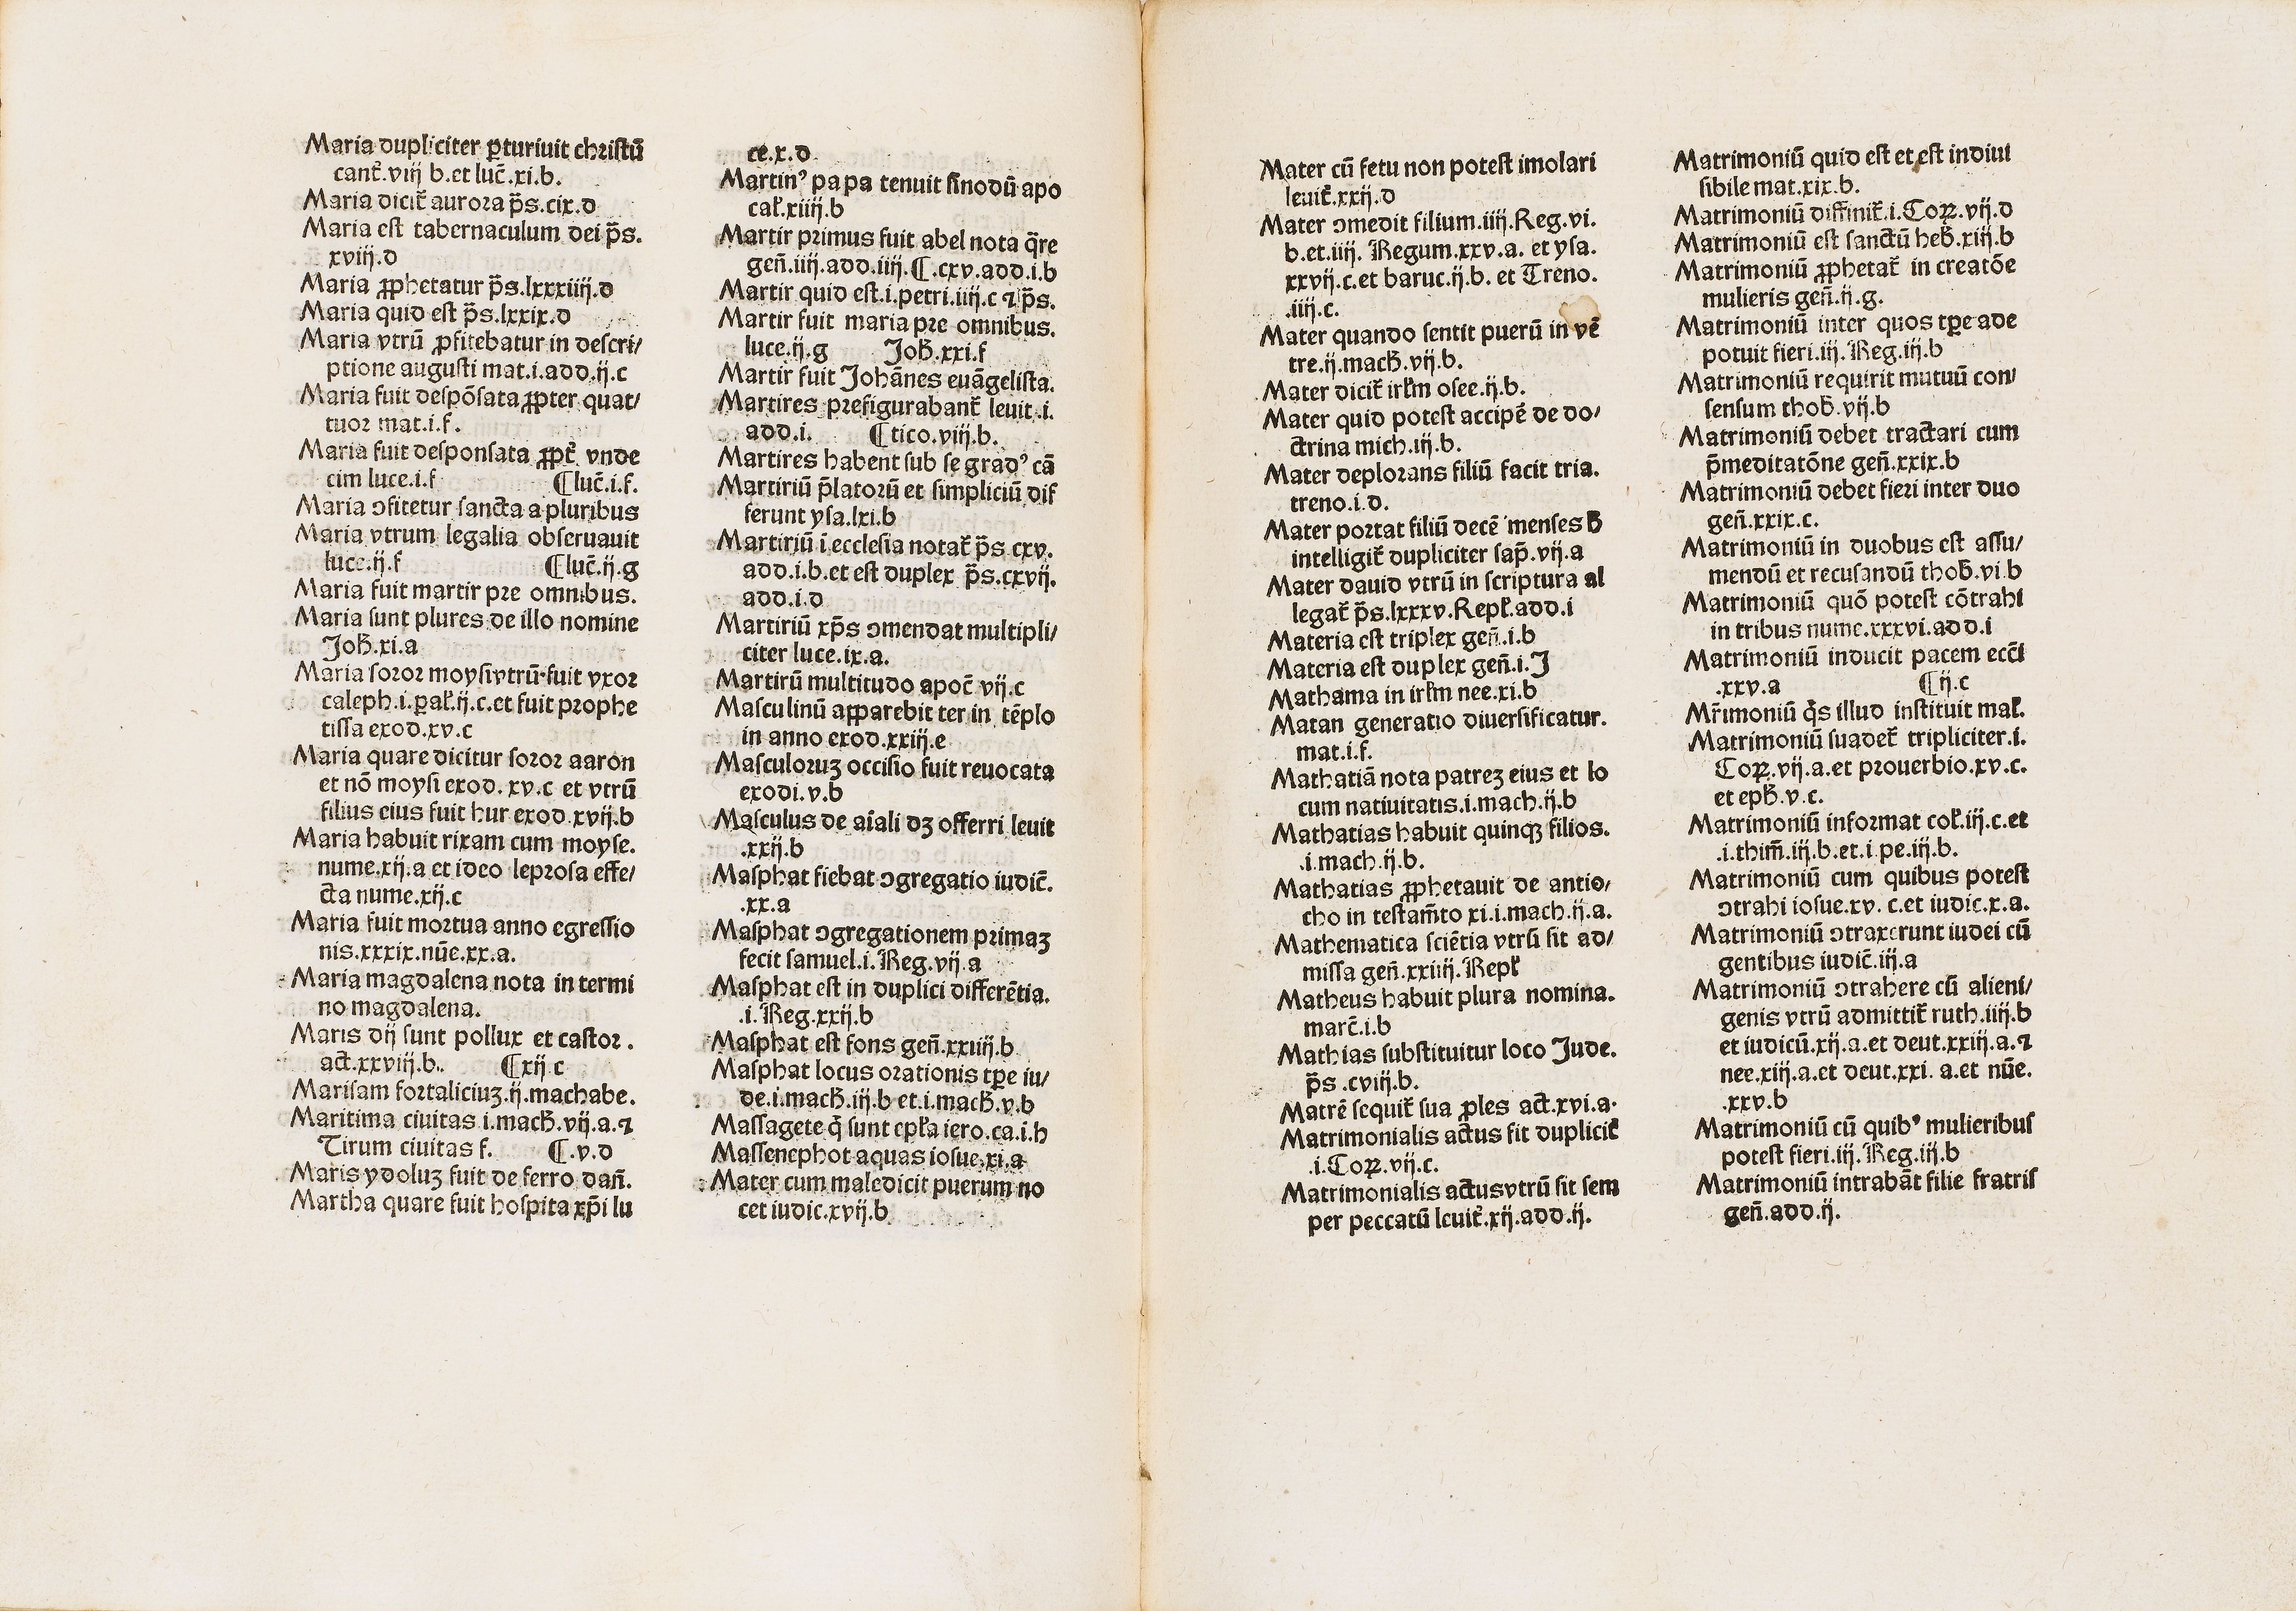 Maria dupliciter ꝑturiuit christū
cant᷑.viij b.et luc̄.xi.b.
Maria dicit᷑ aurora p̄s.cix.d
Maria est tabernaculum dei p̄s.
xviij.d
Maria ꝓphetatur p̄s.lxxxiiij.d
Maria quid est p̄s.lxxix.d
Maria vtrū ꝓfitebatur in descri/
ptione augusti mat.i.add.ij.c
Maria fuit despōsata ꝓpter quat/
tuor mat.i.f.
Maria fuit desponsata ꝓpt᷑ vnde
cim luce.i.f ¶luc̄.i.f.
Maria ꝯfitetur sancta a pluribus
Maria vtrum legalia obseruauit
luce.ij.f ¶luc̄.ij.g
Maria fuit martir pre omnibus.
Maria sunt plures de illo nomine
Joh̄.xi.a
Maria soror moysi vtrū fuit vxor
caleph.i.ꝑal̓.ij.c.et fuit prophe
tissa exod.xv.c
Maria quare dicitur soror aaron
et nō moysi exod. xv.c et vtrū
filius eius fuit hur exod.xvij.b
Maria habuit rixam cum moyse.
nume.xij.a et ideo leprosa effe/
cta nume.xij.c
Maria fuit mortua anno egressio
nis.xxxix.nūe.xx.a.
Maria magdalena nota in termi
no magdalena.
Maris dij sunt pollux et castor.
act.xxviij.b. ¶xij c
Marisam fortaliciuꝫ.ij.machabe.
Maritima ciuitas i.mach̄.vij.a.⁊
Tirum ciuitas f. ¶.v.d
Maris ydoluꝫ fuit de ferro dan̄.
Martha quare fuit hospita xp̄i lu
ce.x.d
Martinꝰ papa tenuit sinodū apo
cal̓.xiiij.b
Martir primus fuit abel nota q̄re
gen̄.iiij.add.iiij.¶.cxv.add.i.b
Martir quid est.i.petri.iiij.c ⁊ p̄s.
Martir fuit maria pre omnibus.
luce.ij.g Joh̄.xxi.f
Martir fuit Johānes euāgelista.
Martires prefigurabant᷑ leuit.i.
add.i. ¶tico.viij.b.
Martires habent sub se gradꝰ cā
Martiriū p̄latorū et simpliciū dif
ferunt ysa.lxi.b
Martiriū ī ecclesia notat᷑ p̄s cxv.
add.i.b.et est duplex p̄s.cxvij.
add.i.d
Martiriū xp̄s ꝯmendat multipli/
citer luce.ix.a.
Martirū multitudo apoc̄ vij.c
Masculinū apparebit ter in tēplo
in anno exod.xxiij.e
Masculoruꝫ occisio fuit reuocata
exodi.v.b
Masculus de aīali dꝫ offerri leuit
.xxij.b
Masphat fiebat ꝯgregatio iudic̄.
.xx.a
Masphat ꝯgregationem primaꝫ
fecit samuel.i.Reg.vij.a
Masphat est in duplici differētia.
.i.Reg.xxij.b
Masphat est fons gen̄.xxiiij.b
Masphat locus orationis tꝑe iu/
de.i.mach̄.iij.b et.i.mach̄.v.b
Massagete q̄ sunt epl̓a iero.ca.i.h
Massenephot aquas iosue.xi.a
Mater cum maledicit puerum no
cet iudic.xvij.b
Mater cū fetu non potest imolari
leuit᷑.xxij.d
Mater ꝯmedit filium.iiij.Reg.vi.
b.et.iiij. Regum.xxv.a. et ysa.
xxvij.c.et baruc.ij.b. et Treno.
.iiij.c.
Mater quando sentit puerū in vē
tre.ij.mach̄.vij.b.
Mater dicit᷑ irl̓m osee.ij.b.
Mater quid potest accipē de do/
ctrina mich.iij.b.
Mater deplorans filiū facit tria.
treno.i.d.
Mater portat filiū decē menses h̄
intelligit᷑ dupliciter sap̄.vij.a
Mater dauid vtrū in scriptura al
legat᷑ p̄s.lxxxv.Repl̓.add.i
Materia est triplex gen̄.i.b
Materia est duplex gen̄.i.J
Mathama in irl̓m nee.xi.b
Matan generatio diuersificatur.
mat.i.f.
Mathatiā nota patreꝫ eius et lo
cum natiuitatis.i.mach.ij.b
Mathatias habuit quinqꝫ filios.
.i.mach.ij.b.
Mathatias ꝓphetauit de antio/
cho in testam̄to xi.i.mach.ij.a.
Mathematica sciētia vtrū sit ad/
missa gen̄.xxiiij.Repl̓
Matheus habuit plura nomina.
marc̄.i.b
Mathias substituitur loco Jude.
p̄s .cviij.b.
Matrē sequit᷑ sua ꝓles act.xvi.a.
Matrimonialis actus fit duplicit᷑
.i.Coꝝ.vij.c.
Matrimonialis actus vtrū sit sem
per peccatū leuit᷑.xij.add.ij.
Matrimoniū quid est et est indiui
sibile mat.xix.b.
Matrimoniū diffinit᷑.i.Coꝝ.vij.d
Matrimoniū est sanctū heb̄.xiij.b
Matrimoniū ꝓphetat᷑ in creatōe
mulieris gen̄.ij.g.
Matrimoniū inter quos tꝑe ade
potuit fieri.iij.Reg.iij.b
Matrimoniū requirit mutuū con/
sensum thob̄.vij.b
Matrimoniū debet tractari cum
p̄meditatōne gen̄.xxix.b
Matrimoniū debet fieri inter duo
gen̄.xxix.c.
Matrimoniū in duobus est assu/
mendū et recusandū thob̄.vi.b
Matrimoniū quō potest cōtrahi
in tribus nume.xxxvi.add.i
Matrimoniū inducit pacem ecc̄i
.xxv.a ¶ij.c
Mr̄imoniū q̇s illud instituit mal̓.
Matrimoniū suadet᷑ tripliciter.i.
Coꝝ.vij.a.et prouerbio.xv.c.
et eph̄.v.c.
Matrimoniū informat col̓.iij.c.et
.i.thim̄.iij.b.et.i.pe.iij.b.
Matrimoniū cum quibus potest
ꝯtrahi iosue.xv. c.et iudic.x.a.
Matrimoniū ꝯtraxerunt iudei cū
gentibus iudic̄.iij.a
Matrimoniū ꝯtrahere cū alieni/
genis vtrū admittit᷑ ruth.iiij.b
et iudicū.xij.a.et deut.xxiij.a.⁊
nee.xiij.a.et deut.xxi. a.et nūe.
.xxv.b
Matrimoniū cū quibꝰ mulieribus
potest fieri.iij.Reg.iij.b
Matrimoniū intrabāt filie fratris
gen̄.add.ij.